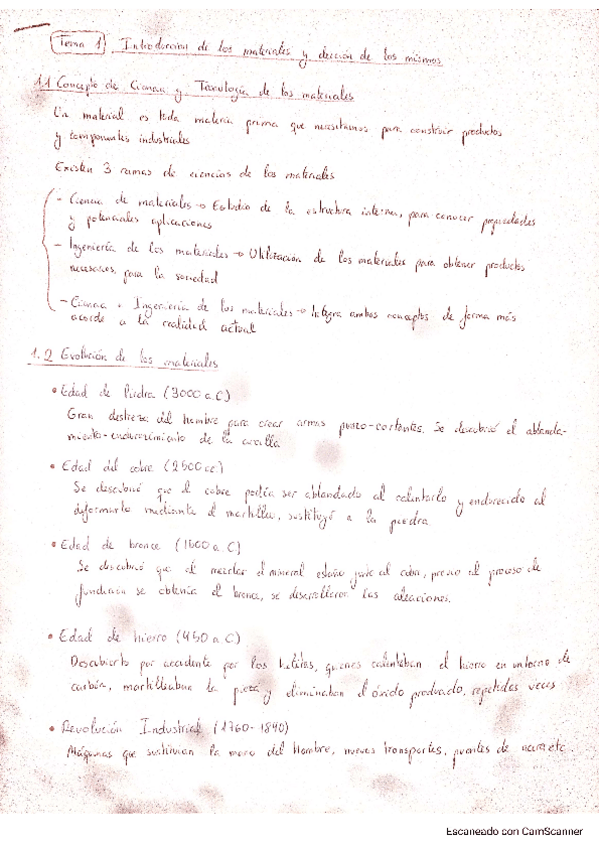 Tema 1 Introducción de los materiales y elección de los mismos
1.1 Concepto de Ciencia y Tecnología de los materiales
Un material es toda materia prima que necesitamos para construir productos
y componentes industriales
Existen 3 ramas de ciencias de los materiales
- Ciencia de materiales → Estudio de la estructura interna, para conocer propiedades
y potenciales aplicaciones
- Ingeniería de los materiales → Utilización de los materiales para obtener productos
necesarios, para la sociedad
- Ciencia e Ingeniería de los materiales → Integra ambos conceptos de forma más
acorde a la realidad actual
1.2 Evolución de los materiales
• Edad de Piedra (3000 a.C)
Gran destreza del hombre para crear armas punzo-cortantes. Se descubrió el ablanda-
miento-endurecimiento de la arcilla
• Edad del cobre (2500 a.c.)
Se descubrió que el cobre podía ser ablandado al calentarlo y endurecido al
deformarlo mediante el martilleo, sustituyó a la piedra.
• Edad de bronce (1000 a.C)
Se descubrió que al mezclar el mineral estaño junto al cobre, previo al proceso de
fundición se obtenía el bronce, se desarrollaron las aleaciones.
• Edad de hierro (450 a.C)
Descubierto por accidente por los hititas, quienes calentaban el hierro en un horno de
carbón, martilleaban la pieza y eliminaban el óxido producido, repetidas veces
• Revolución Industrial (1760-1840)
Máquinas que sustituían la mano del hombre, nuevos transportes, puentes de acero etc.
Escaneado con CamScanner